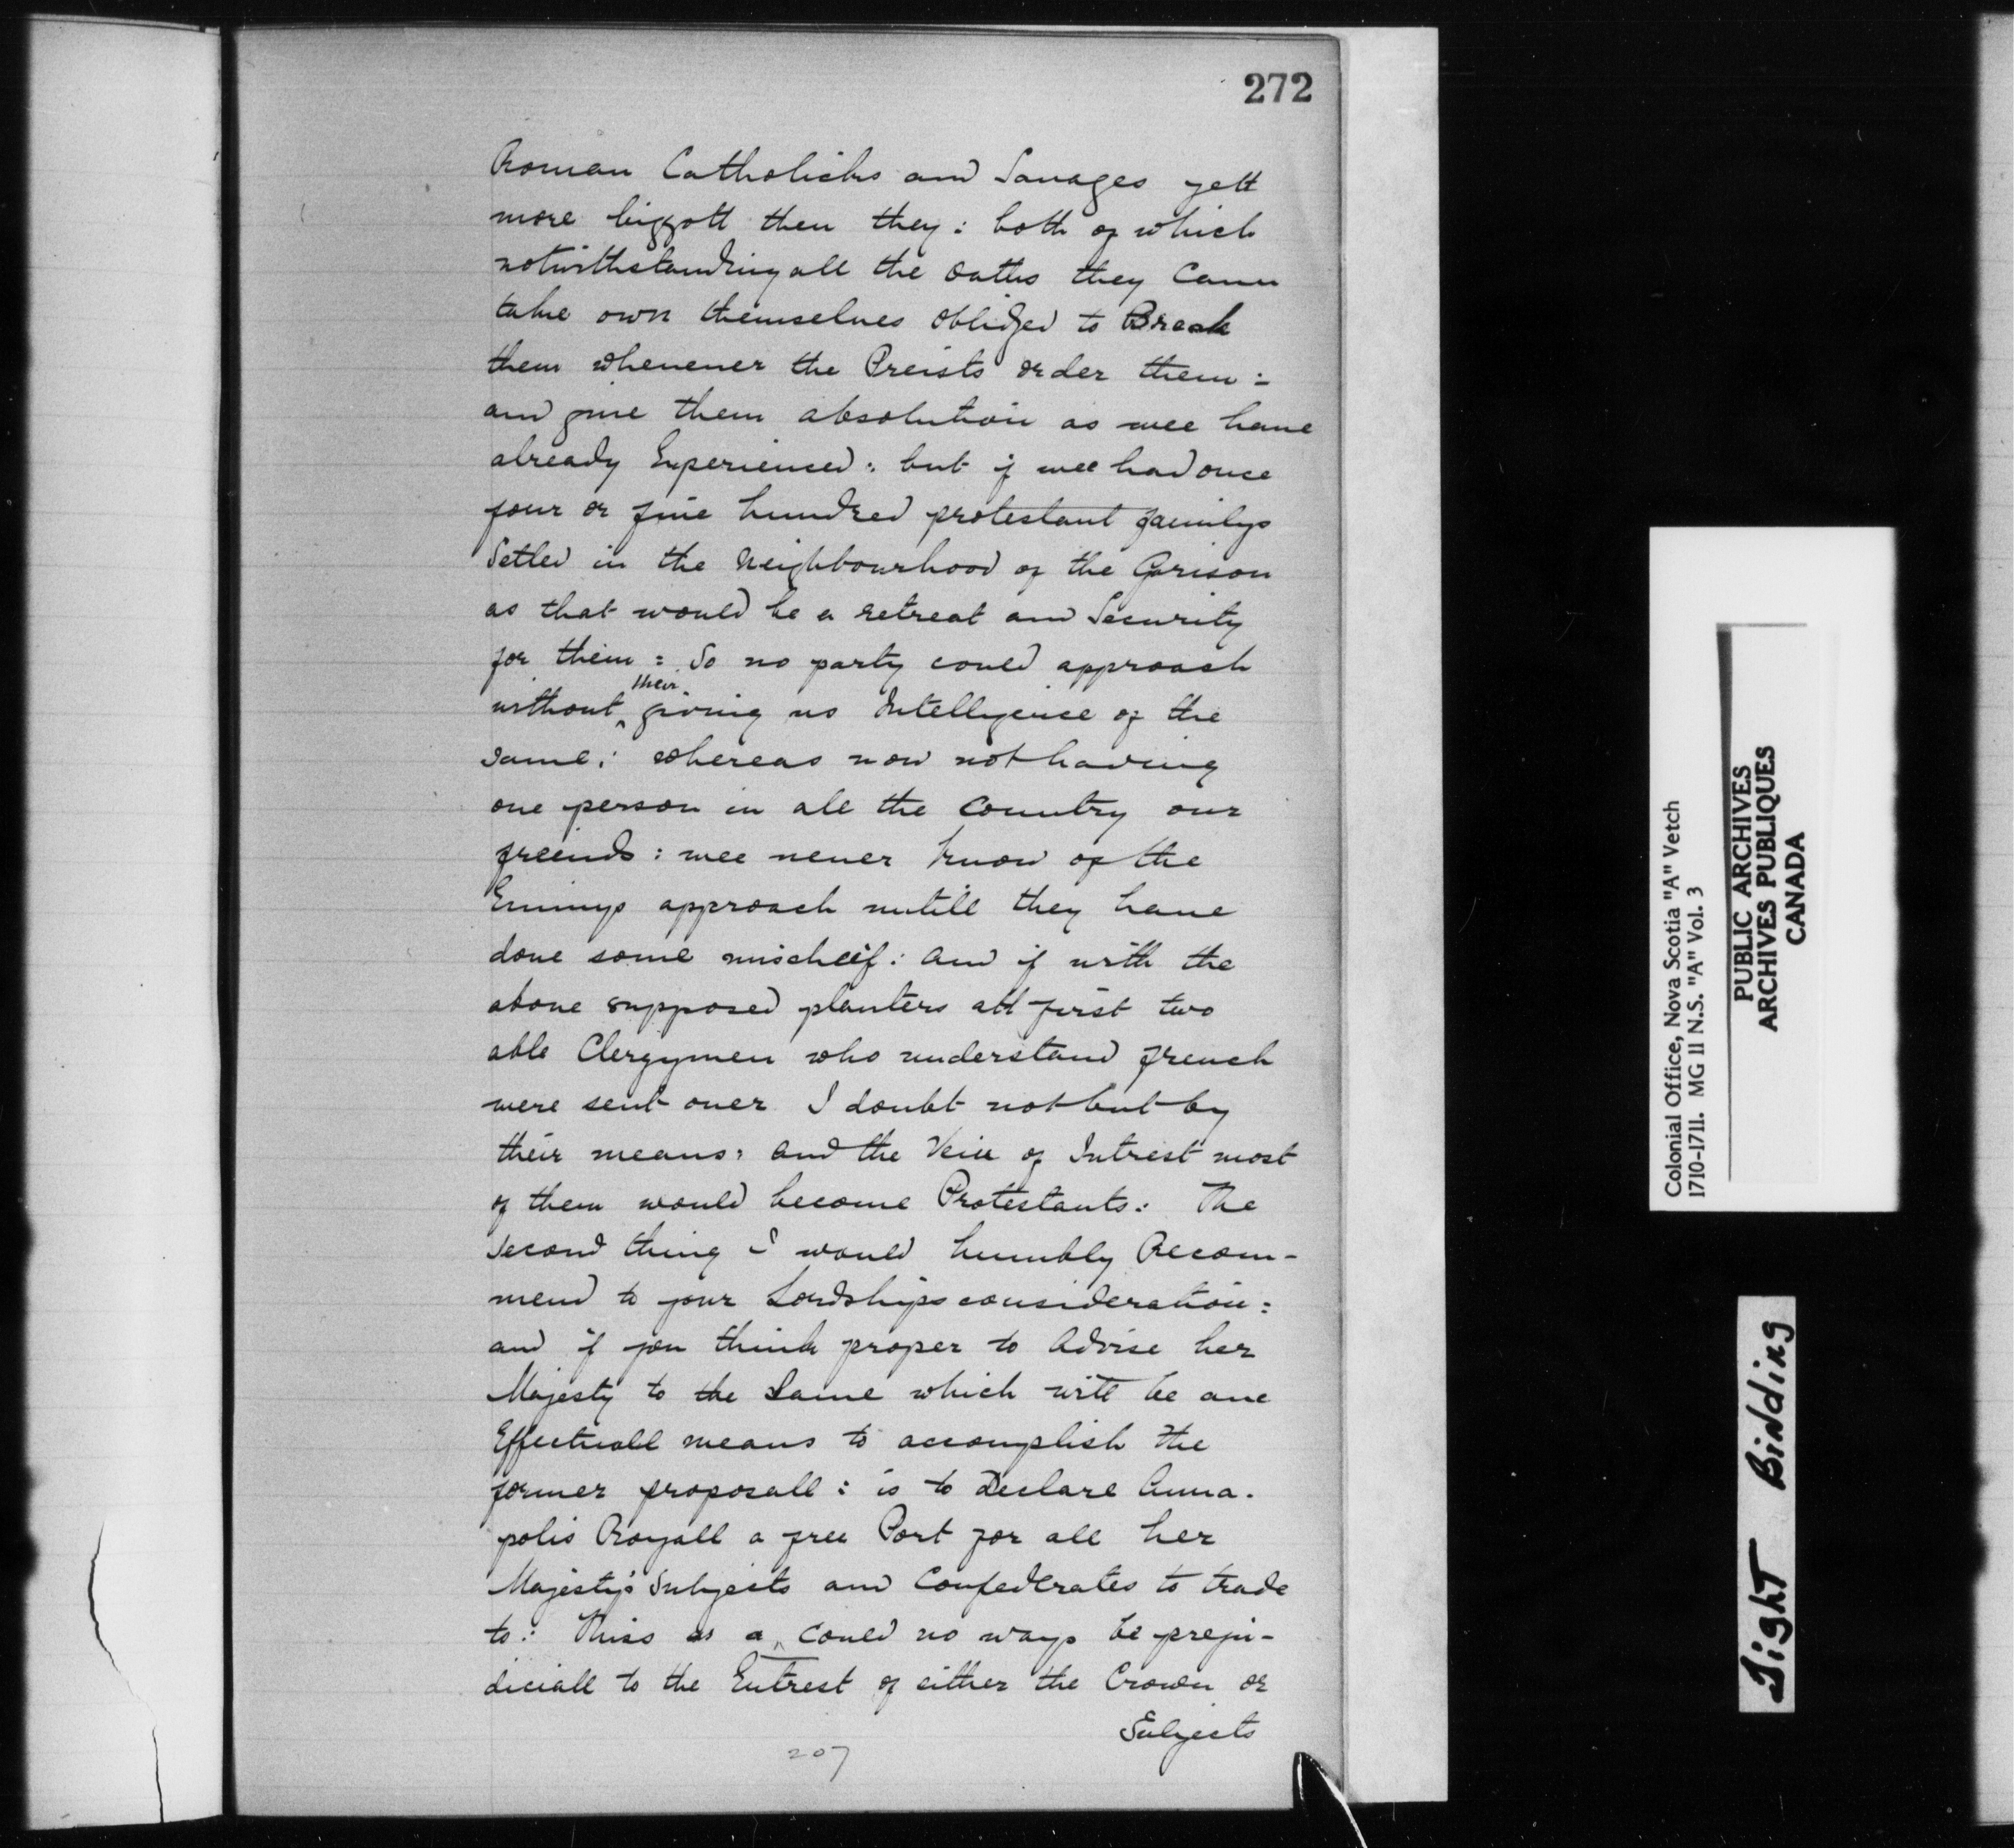 272
Roman Catholicks and Savages yett
more biggott then they: both of which
notwithstanding all the Oaths they Cann
take own themselves Obliged to Break
them whenever the Preists order them:
and give them absolution as wee have
already Experienced: but if wee had once
four or five hundred protestant familys
Setled in the Neighbourhood of the Garison
as that would be a retreat and Security
for them: So no party could approach
without their giving us Intelligence of the
same: whereas now not having
one person in all the Country our
freinds: wee never know of the
Enimys approach untill they have
done some mischeif: and if with the
above supposed planters att first two
able Clergymen who understand french
were sent over I doubt not but by
their means: and the Veiu of Intrest most
of them would become Protestants: The
Second thing I would humbly Recom-
mend to your Lordships consideration:
and if you think proper to Advise her
Majesty to the Same which will be ane
Effectuall means to accomplish the
former proposall: is to Declare Anna-
polis Royall a free Port for all her
Majesty's Subjects and Confederates to trade
to: This as a could no ways be preju-
diciall to the Entrest of either the Crown or
Subjects
207
Colonial Office, Nova Scotia "A" Vetch
1710-1711. MG 11 N.S. "A" Vol. 3
PUBLIC ARCHIVES
ARCHIVES PUBLIQUES
CANADA
Tight Binding